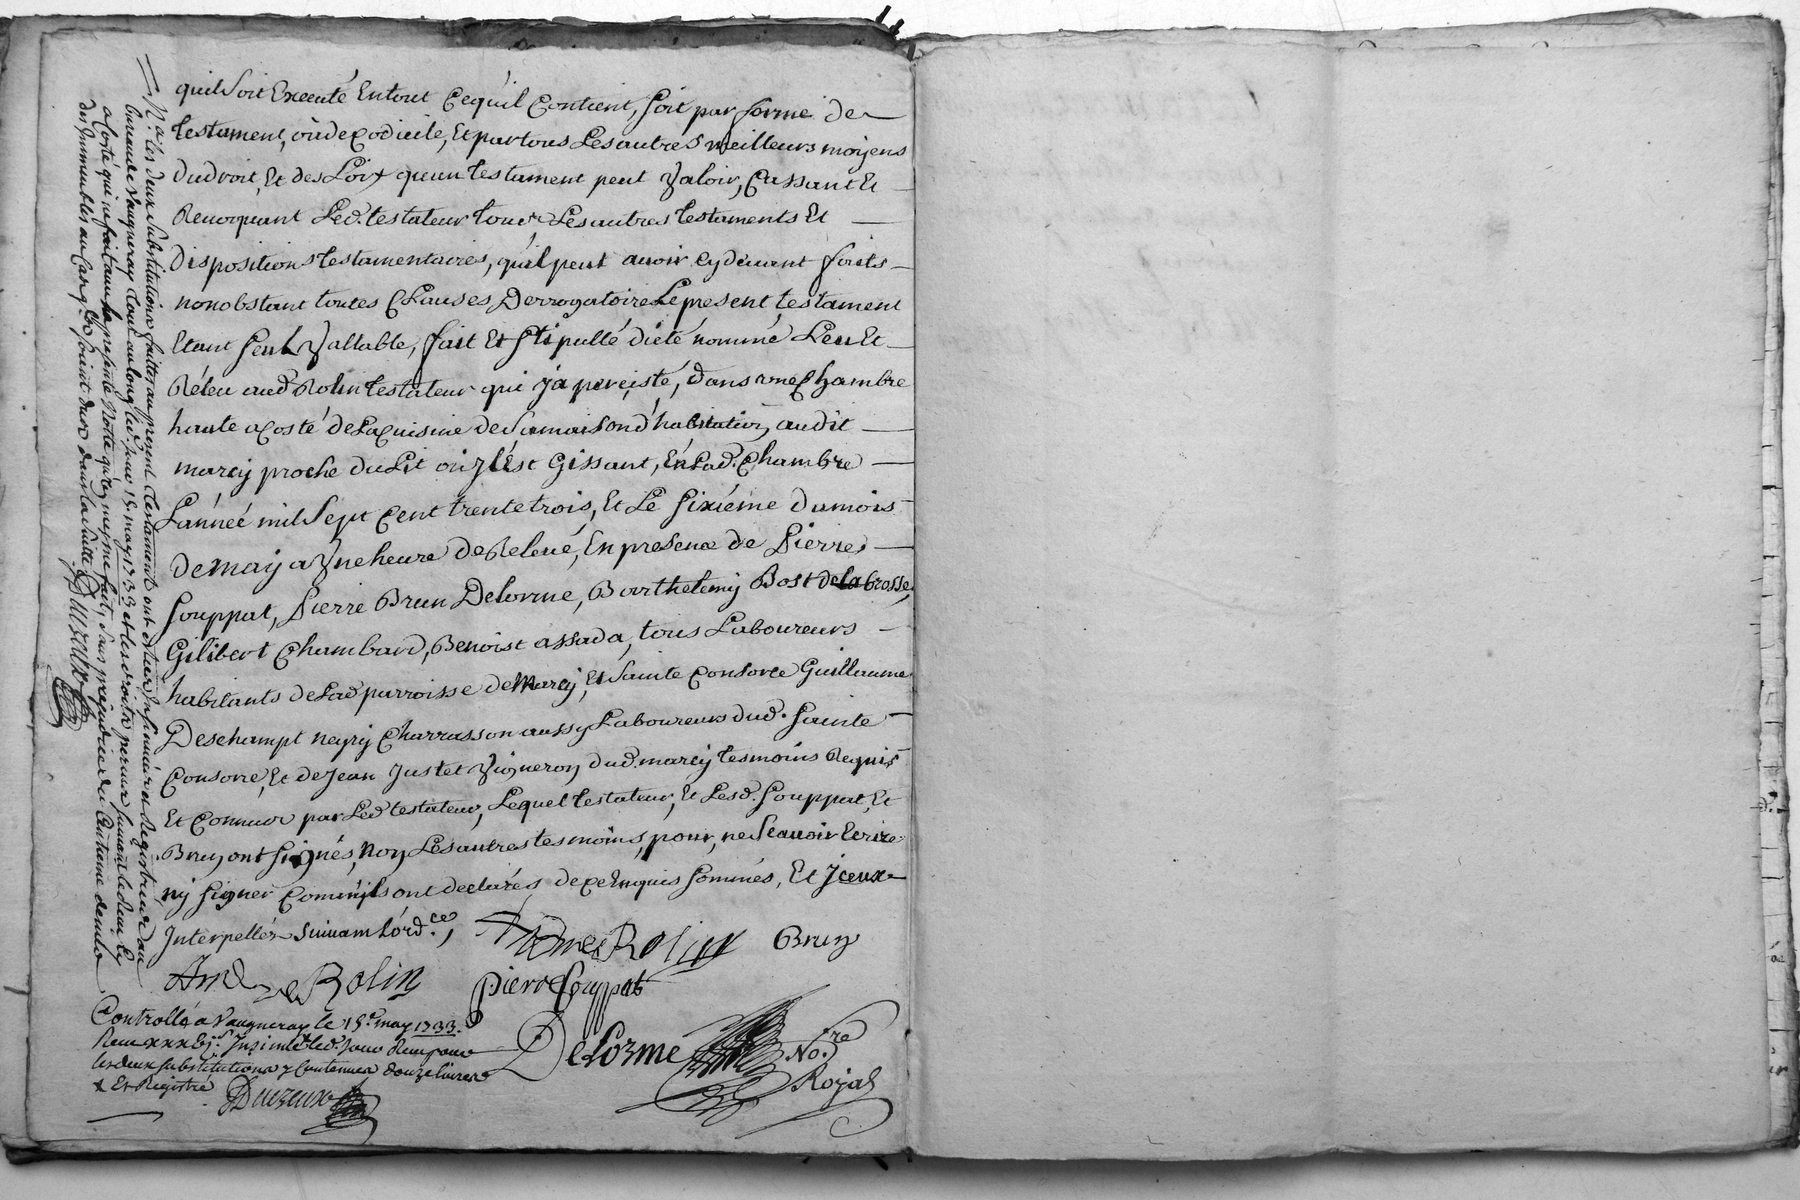 quil soit Executé Entout Cequil Contient, soit par forme de
testament, où de Codicile, Et partous Les autres meilleurs moyens
dudroit, Et des Loix quun testament peut Valoir, Cassant Et
Revoquant Led. testateur tous Les autres testaments Et
dispositions testamentaires, quil peut avoir cydevant faits
nonobstant toutes Clauses Derrogatoires Le present testament
Etant seul Vallable, fait Et stipullé dicté nommé Leu Et
Réleu aud. Rolin testateur qui ja perçisté, dans une Chambre
haute a Costé de La Cuisine de sa maison d'habitation audit
marcy proche du Lit où jl Est Gissant, En Lad. Chambre
L'année mil sept Cent trente trois, Et Le sixiéme du mois
de may a Vne heure de Relevé, En presence de Pierre
souppat, Pierre Brun Delorme, Barthelemy Bost de la brosse,
Gilibert Chambard, Benoist assada, tous Laboureurs
habitants de Lad. parroisse de Marcy, Et sainte Consorce Guillaume
Deschampt neyry Charrasson aussy Laboureurs dud. sainte
Consorce, Et de Jean Justet Vigneron dud. marcy tesmoins Requis
Et Connus par Led. testateur, Lequel testateur, Et Lesd. souppat, Et
Brun ont signés, Non Les autres tesmoins, pour ne scavoir Ecrire
ny signer Comm'jls ont declarés de Ce Enquis sommés, Et jceux
Interpellés suivam L'ord.ce,
Rolin Brun
Rolin
Pierre souppat
Delorme No.re
Royal
Controllé a Vaugneray le 15e may 1733.
les deux substitutions y Contenues douze livres
& Et Registré
Duzeux
Na. les deux substitutions faittes au present testament ont
bureau de Vaugneray tout au long led. jour 15 may 1733 et les droits perceus suivant
a costé qui ne fait au
des immeubles